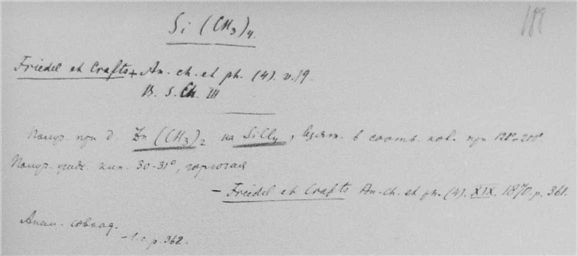 Si (CH3)4.
Friedel et Crafts + An. ch. et ph. (4). v. 19
B. S. Ch. III
Получ. при д. Zn (CH3)2 на SiCl4, взят. в соотв. кол. при 120°-200°
Получ. жидк. кип. 30-31°, горючая
- Friedel et Crafts An. ch. et ph. (4). XIX. 1870 p. 361.
Анал. совпад.
- l. c. p. 362.